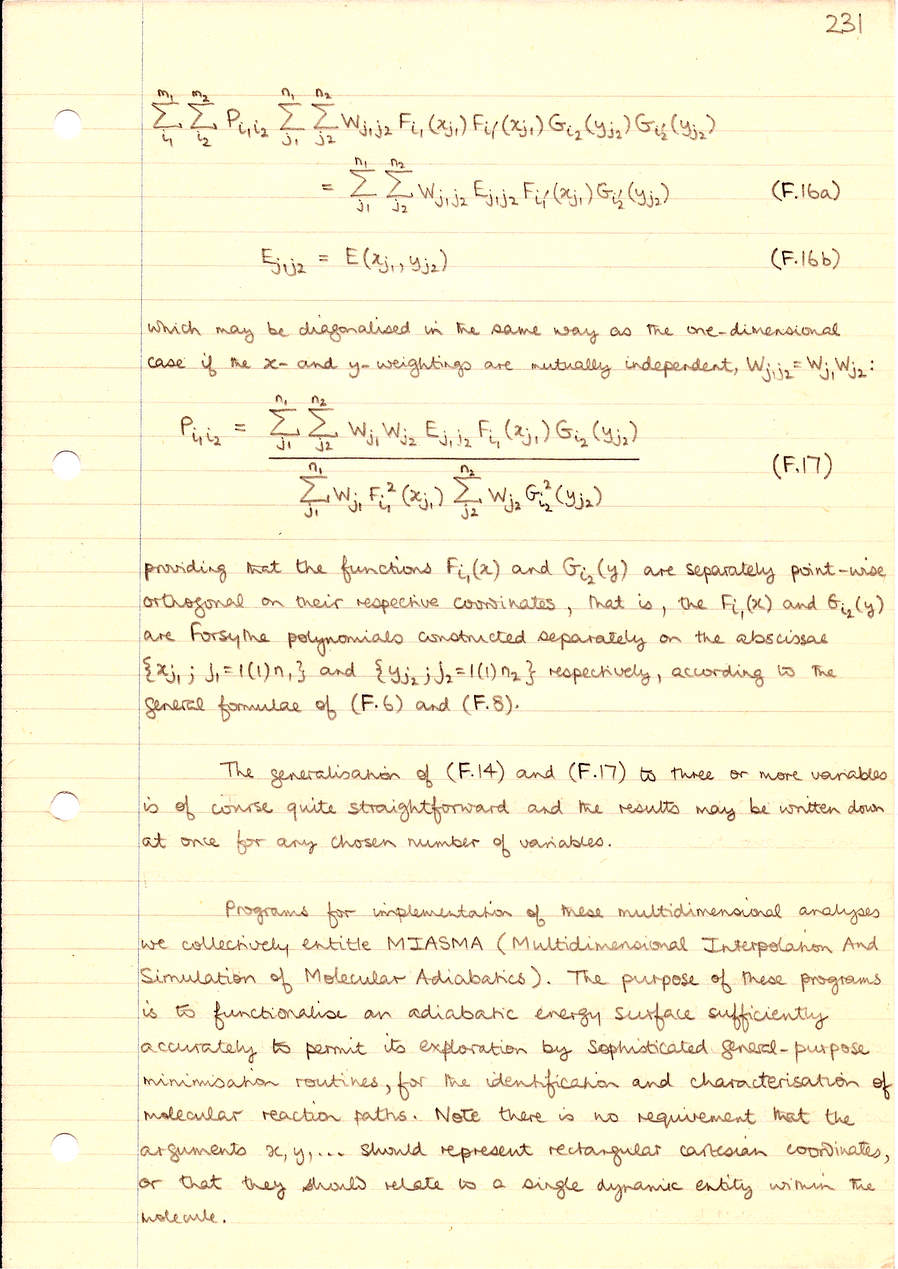 231
∑_{i₁}^{m₁} ∑_{i₂}^{m₂} P_{i₁i₂} ∑_{j₁}^{n₁} ∑_{j₂}^{n₂} W_{j₁j₂} F_{i₁}(x_{j₁}) F_{i₁′}(x_{j₁}) G_{i₂}(y_{j₂}) G_{i₂′}(y_{j₂})
= ∑_{j₁}^{n₁} ∑_{j₂}^{n₂} W_{j₁j₂} E_{j₁j₂} F_{i₁′}(x_{j₁}) G_{i₂′}(y_{j₂}) (F.16a)
E_{j₁j₂} = E(x_{j₁}, y_{j₂}) (F.16b)
which may be diagonalised in the same way as the one-dimensional
case if the x- and y-weightings are mutually independent, W_{j₁j₂} = W_{j₁}W_{j₂}:
P_{i₁i₂} = ∑_{j₁}^{n₁} ∑_{j₂}^{n₂} W_{j₁} W_{j₂} E_{j₁j₂} F_{i₁}(x_{j₁}) G_{i₂}(y_{j₂})
∑_{j₁}^{n₁} W_{j₁} F_{i₁}²(x_{j₁}) ∑_{j₂}^{n₂} W_{j₂} G_{i₂}²(y_{j₂}) (F.17)
providing that the functions F_{i₁}(x) and G_{i₂}(y) are separately point-wise
orthogonal on their respective coordinates, that is, the F_{i₁}(x) and G_{i₂}(y)
are Forsythe polynomials constructed separately on the abscissae
{x_{j₁}; j₁=1(1)n₁} and {y_{j₂}; j₂=1(1)n₂} respectively, according to the
general formulae of (F.6) and (F.8).
The generalisation of (F.14) and (F.17) to three or more variables
is of course quite straightforward and the results may be written down
at once for any chosen number of variables.
Programs for implementation of these multidimensional analyses
we collectively entitle MIASMA (Multidimensional Interpolation And
Simulation of Molecular Adiabatics). The purpose of these programs
is to functionalise an adiabatic energy surface sufficiently
accurately to permit its exploration by sophisticated general-purpose
minimisation routines, for the identification and characterisation of
molecular reaction paths. Note there is no requirement that the
arguments x, y, ... should represent rectangular cartesian coordinates,
or that they should relate to a single dynamic entity within the
molecule.